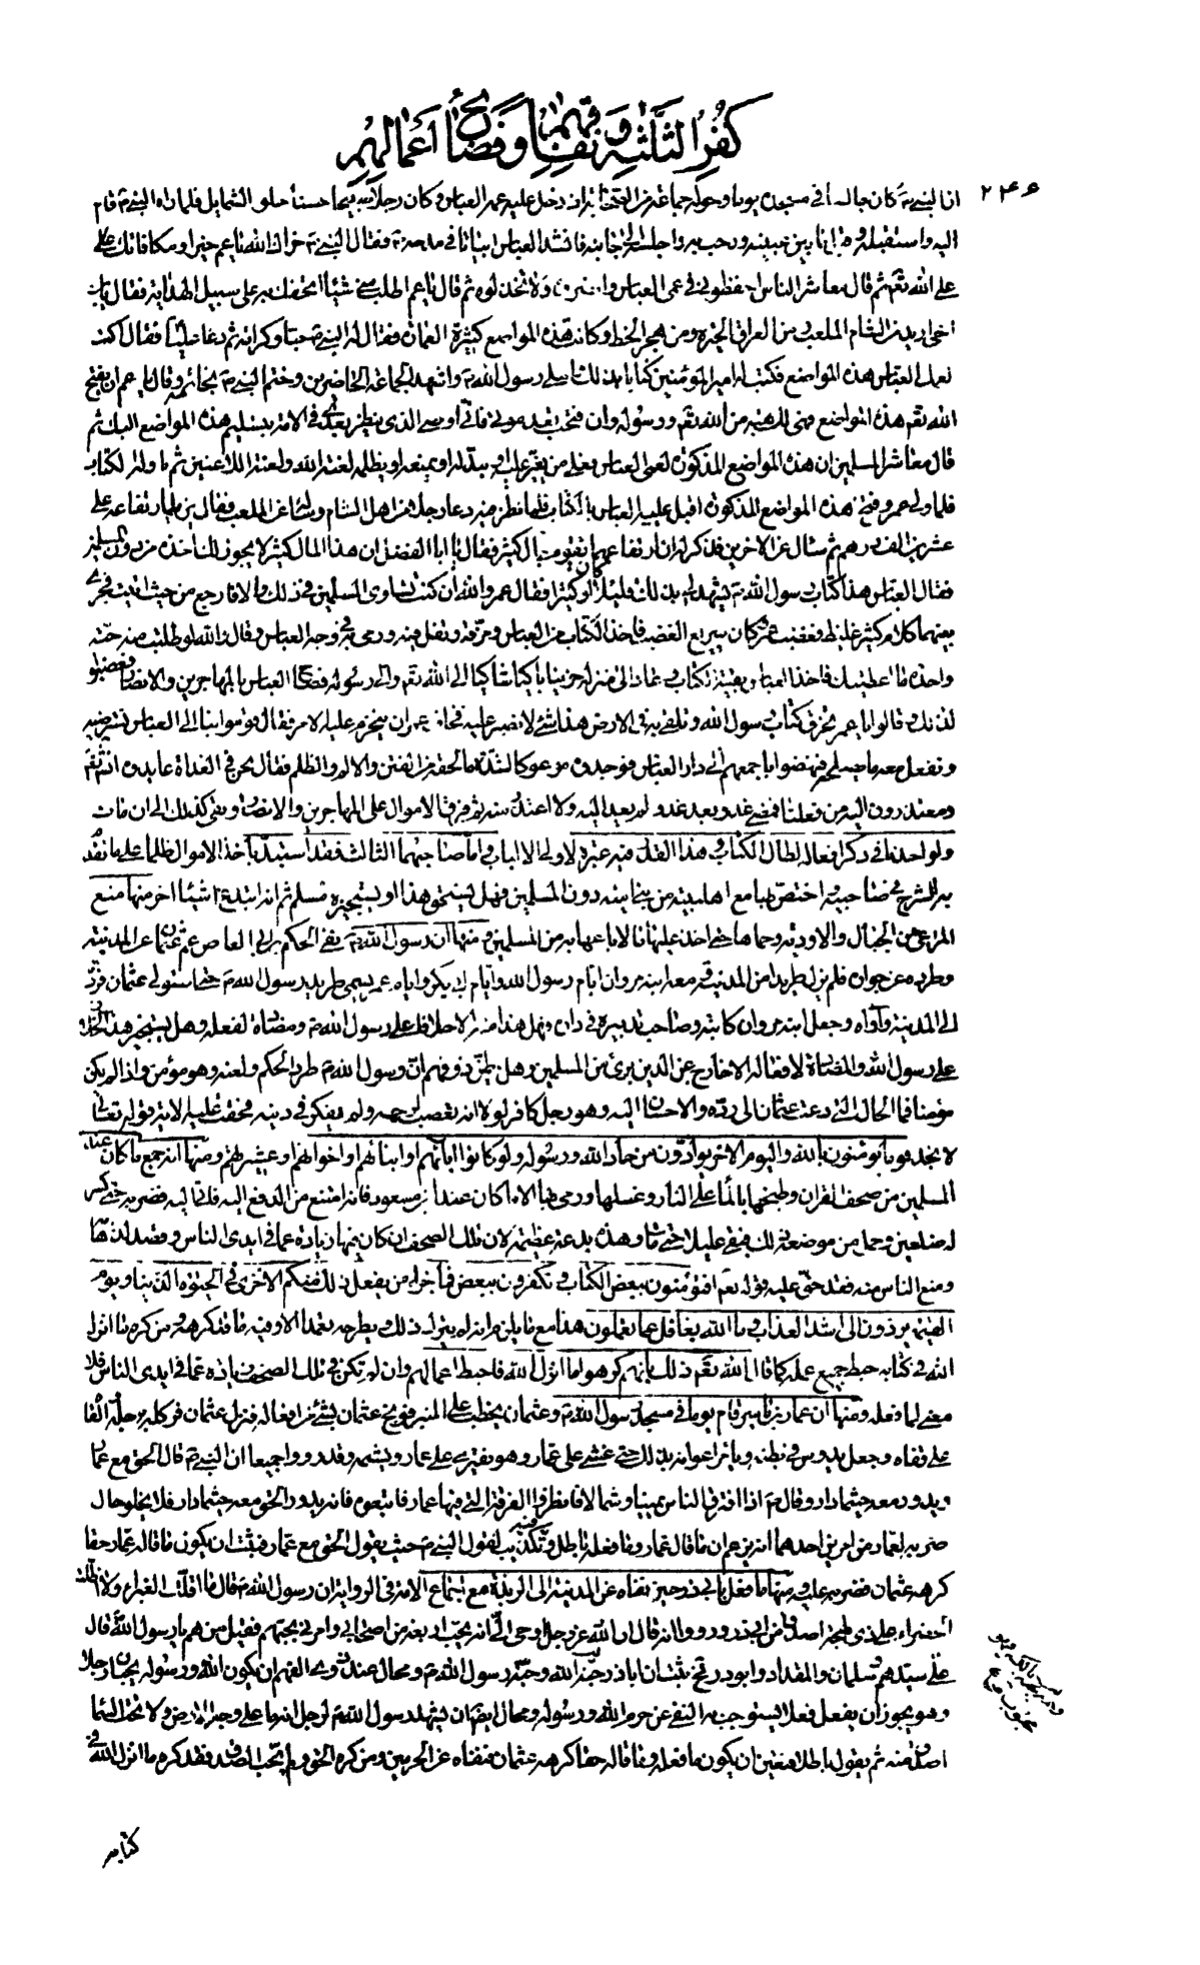 كفر الثلثة ونفاقهم وفضائح أعمالهم
۲۴۶
ان النبي ص كان جالسا في مسجده يوما وحوله جماعة من الصحابة اذ دخل عليه عمه العباس وكان رجلا صبيحا حسنا حلو الشمايل فلما راه النبي ص قام
اليه واستقبله وقبل ما بين عينيه ورحب به واجلسه الى جانبه فانشد العباس ابياتا في مدحه ص فقال النبي ص جزاك الله يا عم خيرا ومكافاتك على
على الله تعم ثم قال معاشر الناس احفظوني في عمى العباس وانصروه ولا تخذلوه ثم قال يا عم اطلب مني شيئا اتحفك به على سبيل الهداية فقال يابن
اخى اريد من الشام الملعب ومن العراق الحيرة ومن هجر الخط وكانت هذه المواضع كثيرة العمارة فقال له النبي ص حبا وكرامة ثم دعا عليا فقال اكتب
لعمك العباس هذه المواضع فكتب له امير المؤمنين كتابا بذلك املاء رسول الله ص واشهد الجماعة الحاضرين وختم النبي ص بخاتمه وقال يا عم ان يفتح
الله تعم هذه المواضع فهى لك هبة من الله تعم ورسوله وان فتحت بعد موتى فانى اوصى الذى ينظر بعدى في الامة بتسليم هذه المواضع اليك ثم
قال معاشر المسلمين ان هذه المواضع المذكورة لعمى العباس فعلى من يغير عليه او يبدله او يمنعه او يظلمه لعنة الله ولعنة اللاعنين ثم ناوله الكتاب
فلما ولى عمر وفتح هذه المواضع المذكورة اقبل عليه العباس بالكتاب فلما نظر فيه دعا رجلا من اهل الشام وسئله عن الملعب فقال يزيد ارتفاعه على
عشرين الف درهم ثم سئال عن الاخرين فذكر له ان ارتفاعهما تقوم بمال كثير فقال يا ابا الفضل ان هذا المال كثير لا يجوز لك اخذه من دون المسلمين
فقال العباس هذا كتاب رسول الله ص يشهد لي بذلك قليلا كان او كثيرا فقال عمر والله ان كنت تساوى المسلمين في ذلك والا فارجع من حيث اتيت فجرى
بينهما كلام كثير غليظ فغضب عمر وكان سريع الغضب فاخذ الكتاب من العباس ومزقه وتفل فيه ورمى به في وجه العباس وقال والله لو طلبت منه حبة
واحدة ما اعطيتك فاخذ العباس بقية الكتاب وعاد الى منزله حزينا باكيا شاكيا الى الله تعم والى رسوله فصاح العباس بالمهاجرين والانصار فغضبوا
لذلك وقالوا يا عمر تخرق كتاب رسول الله وتلقى به في الارض هذا شئ لا نصبر عليه فخاف عمر ان ينخرم عليه الامر فقال قوموا بنا الى العباس نسترضيه
ونفعل معه ما يصلحه فنهضوا باجمعهم الى دار العباس فوجدوه موعوكا لشدة ما لحقه من الفتن والالم والظلم فقال نحن في الغداة عايدوه انشاء الله تعم
ومعتذرون اليه من فعلنا فمضى غد وبعد غد ولم يعد اليه ولا اعتذر منه ثم فرق الاموال على المهاجرين والانصار وبقى كذلك الى ان مات
ولو اخذنا في ذكر افعاله لطال الكتاب وفي هذا القدر فيه عبرة لاولى الالباب واما صاحبهما الثالث فقد استبد باخذ الاموال ظلما على ما تقدم
به الشرح في صاحبيه واختص بها مع اهل بيته من بنى امية دون المسلمين فهل يستحق هذا او يستجيزه مسلم ثم انه ابتدع اشياء اخر منها منع
المراعى من الجبال والاودية وحماها حتى اخذ عليها مالا باعها به من المسلمين ومنها ان رسول الله ص نفى الحكم بن ابي العاص عم عثمان عن المدينة
وطرده عن جواره فلم يزل طريدا من المدينة ومعه ابنه مروان ايام رسول الله ص وايام ابي بكر وايام عمر يسمى طريد رسول الله ص حتى استولى عثمان فرده
الى المدينة وآواه وجعل ابنه مروان كاتبه وصاحب تدبيره في داره فهل هذا منه الا خلاف على رسول الله ص ومضادة لفعله وهل يستجيز هذا الخلاف
على رسول الله والمضادة لافعاله الا خارج عن الدين برئ من المسلمين وهل يظن ذو فهم ان رسول الله ص طرد الحكم ولعنه وهو مؤمن واذا لم يكن
مؤمنا فما الحال التى دعت عثمان الى رده والاحسان اليه وهو رجل كافر لولا انه تعصب لرحمه ولم يفكر في دينه فحقت عليه الاية قوله تعالى
لا تجد قوما يؤمنون بالله واليوم الاخر يوادون من حاد الله ورسوله ولو كانوا اباءهم او ابناءهم او اخوانهم او عشيرتهم ومنها انه جمع ما كان عند
المسلمين من صحف القران وطبخها بالماء على النار وغسلها ورمى بها الا ما كان عند ابن مسعود فانه امتنع من الدفع اليه فاتى اليه فضربه حتى كسر
له ضلعين وحمل من موضعه ذلك فبقى عليلا حتى مات وهذه بدعة عظيمة لان تلك الصحف ان كان فيها زيادة عما في ايدى الناس وقصد لذهابها
ومنع الناس منه فقد حق عليه قوله تعم افتؤمنون ببعض الكتاب وتكفرون ببعض فما جزاء من يفعل ذلك منكم الا خزى في الحيوة الدنيا ويوم
القيمة يردون الى اشد العذاب وما الله بغافل عما تعملون هذا مع ما يلزم انه لم يترك ذلك ويطرحه تعمدا الا وفيه ما قد كرهه ومن كره ما انزل
الله في كتابه حبط جميع عمله كما قال الله تعم ذلك بانهم كرهوا ما انزل الله فاحبط اعمالهم وان لم تكن في تلك الصحف زيادة عما في ايدى الناس فلا
معنى لما فعله ومنها ان عمار بن ياسر قام يوما في مسجد رسول الله ص وعثمان يخطب على المنبر فوبخ عثمان بشئ من افعاله فنزل عثمان فركله برجله والقاه
على قفاه وجعل يدوس في بطنه ويامر اعوانه بذلك حتى غشى على عمار وهو يفترى على عمار ويشتمه وقد رووا جميعا ان النبي ص قال الحق مع عمار
ويدور معه حيثما دار وقال ص اذا افترق الناس يمينا وشمالا فانظروا الفرقة التي فيها عمار فاتبعوه فانه يدور الحق معه حيثما دار فلا يخلو حال
ضربه لعمار من امرين احدهما انه يزعم ان ما قال عمار وما فعله باطل وفيه تكذيب لقول النبي ص حيث يقول الحق مع عمار فثبت ان يكون ما قاله عمار حقا
كرهه عثمان فضربه عليه ومنها ما فعل بابي ذر حين نفاه عن المدينة الى الربذة مع اجماع الامة في الرواية ان رسول الله ص قال ما اقلت الغبراء ولا اظلت
الخضراء على ذى لهجة اصدق من ابى ذر ورووا انه قال ان الله عز وجل اوحى الى انه يحب اربعة من اصحابى وامرنى بحبهم فقيل من هم يا رسول الله قال
على سيدهم وسلمان والمقداد وابوذر فح ثبت ان اباذر احبه الله وحبه رسول الله ص ومحال عند ذوى الفهم ان يكون الله ورسوله يحبان رجلا
وهو يجوز ان يفعل فعلا يستوجب به النفى عن حرم الله ورسوله ومحال ايضا ان يشهد رسول الله ص لرجل انه ما على وجه الارض ولا تحت السماء
اصدق منه ثم يقول باطلا فتعين ان يكون ما فعله وما قاله حقا كرهه عثمان فنفاه عن الحرمين ومن كره الحق ولم يحب الصدق فقد كره ما انزل الله في
كتابه